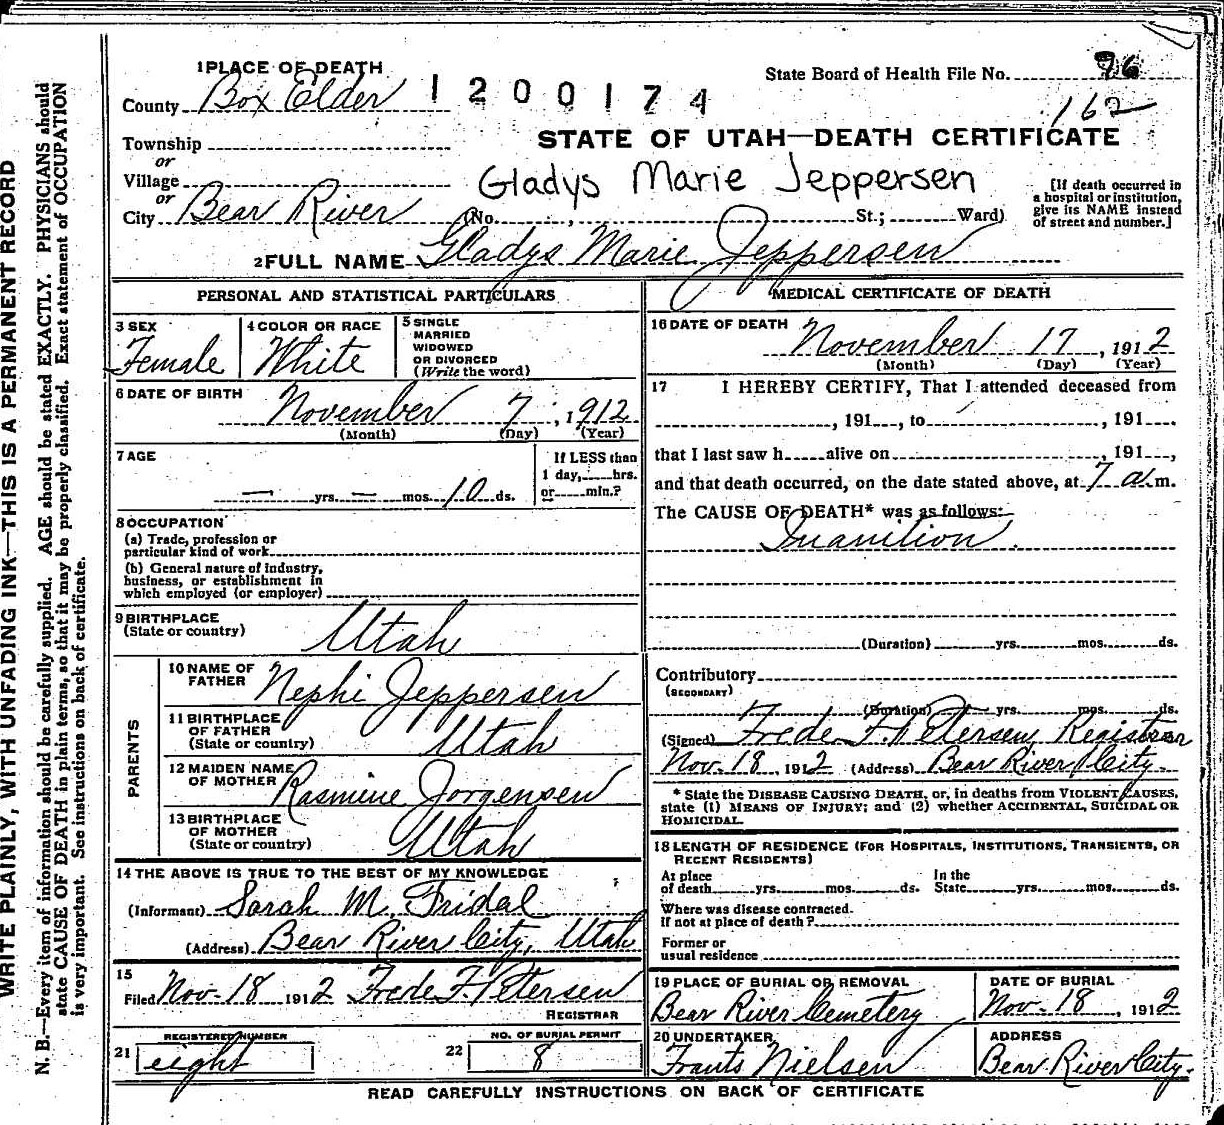 WRITE PLAINLY, WITH UNFADING INK—THIS IS A PERMANENT RECORD
N. B.—Every item of information should be carefully supplied. AGE should be stated EXACTLY. PHYSICIANS should
state CAUSE OF DEATH in plain terms, so that it may be properly classified. Exact statement of OCCUPATION
is very important. See instructions on back of certificate.
1 PLACE OF DEATH
State Board of Health File No. 76
County Box Elder 1200174
162
STATE OF UTAH—DEATH CERTIFICATE
Township
or
Village
or
Gladys Marie Jeppersen
City Bear River (No. , St.; Ward)
[If death occurred in
a hospital or institution,
give its NAME instead
of street and number.]
2 FULL NAME Gladys Marie Jeppersen
PERSONAL AND STATISTICAL PARTICULARS
3 SEX
Female
4 COLOR OR RACE
White
5 SINGLE
MARRIED
WIDOWED
OR DIVORCED
(Write the word)
6 DATE OF BIRTH
November 7, 1912
(Month) (Day) (Year)
7 AGE
— yrs. — mos. 10 ds.
If LESS than
1 day, hrs.
or min.?
8 OCCUPATION
(a) Trade, profession or
particular kind of work
(b) General nature of industry,
business, or establishment in
which employed (or employer)
9 BIRTHPLACE
(State or country)
Utah
PARENTS
10 NAME OF
FATHER
Nephi Jeppersen
11 BIRTHPLACE
OF FATHER
(State or country)
Utah
12 MAIDEN NAME
OF MOTHER
Rasmine Jorgensen
13 BIRTHPLACE
OF MOTHER
(State or country)
Utah
14 THE ABOVE IS TRUE TO THE BEST OF MY KNOWLEDGE
(Informant) Sarah M. Fridal
(Address) Bear River City, Utah
15
Filed Nov. 18 1912 Frede F. Petersen
REGISTRAR
REGISTERED NUMBER
21 eight
NO. OF BURIAL PERMIT
22 8
MEDICAL CERTIFICATE OF DEATH
16 DATE OF DEATH
November 17, 1912
(Month) (Day) (Year)
17 I HEREBY CERTIFY, That I attended deceased from
, 191 , to , 191
that I last saw h alive on , 191 ,
and that death occurred, on the date stated above, at 7 a.m.
The CAUSE OF DEATH* was as follows:
Inanition
(Duration) yrs. mos. ds.
Contributory
(SECONDARY)
(Duration) yrs. mos. ds.
(Signed) Frede F. Petersen, Registrar
Nov. 18, 1912 (Address) Bear River City.
* State the DISEASE CAUSING DEATH, or, in deaths from VIOLENT CAUSES,
state (1) MEANS OF INJURY; and (2) whether ACCIDENTAL, SUICIDAL OR
HOMICIDAL.
18 LENGTH OF RESIDENCE (FOR HOSPITALS, INSTITUTIONS, TRANSIENTS, OR
RECENT RESIDENTS)
At place
of death yrs. mos. ds.
In the
State yrs. mos. ds.
Where was disease contracted.
If not at place of death?
Former or
usual residence
19 PLACE OF BURIAL OR REMOVAL
Bear River Cemetery
DATE OF BURIAL
Nov. 18, 1912
20 UNDERTAKER
Frants Nielsen
ADDRESS
Bear River City.
READ CAREFULLY INSTRUCTIONS ON BACK OF CERTIFICATE